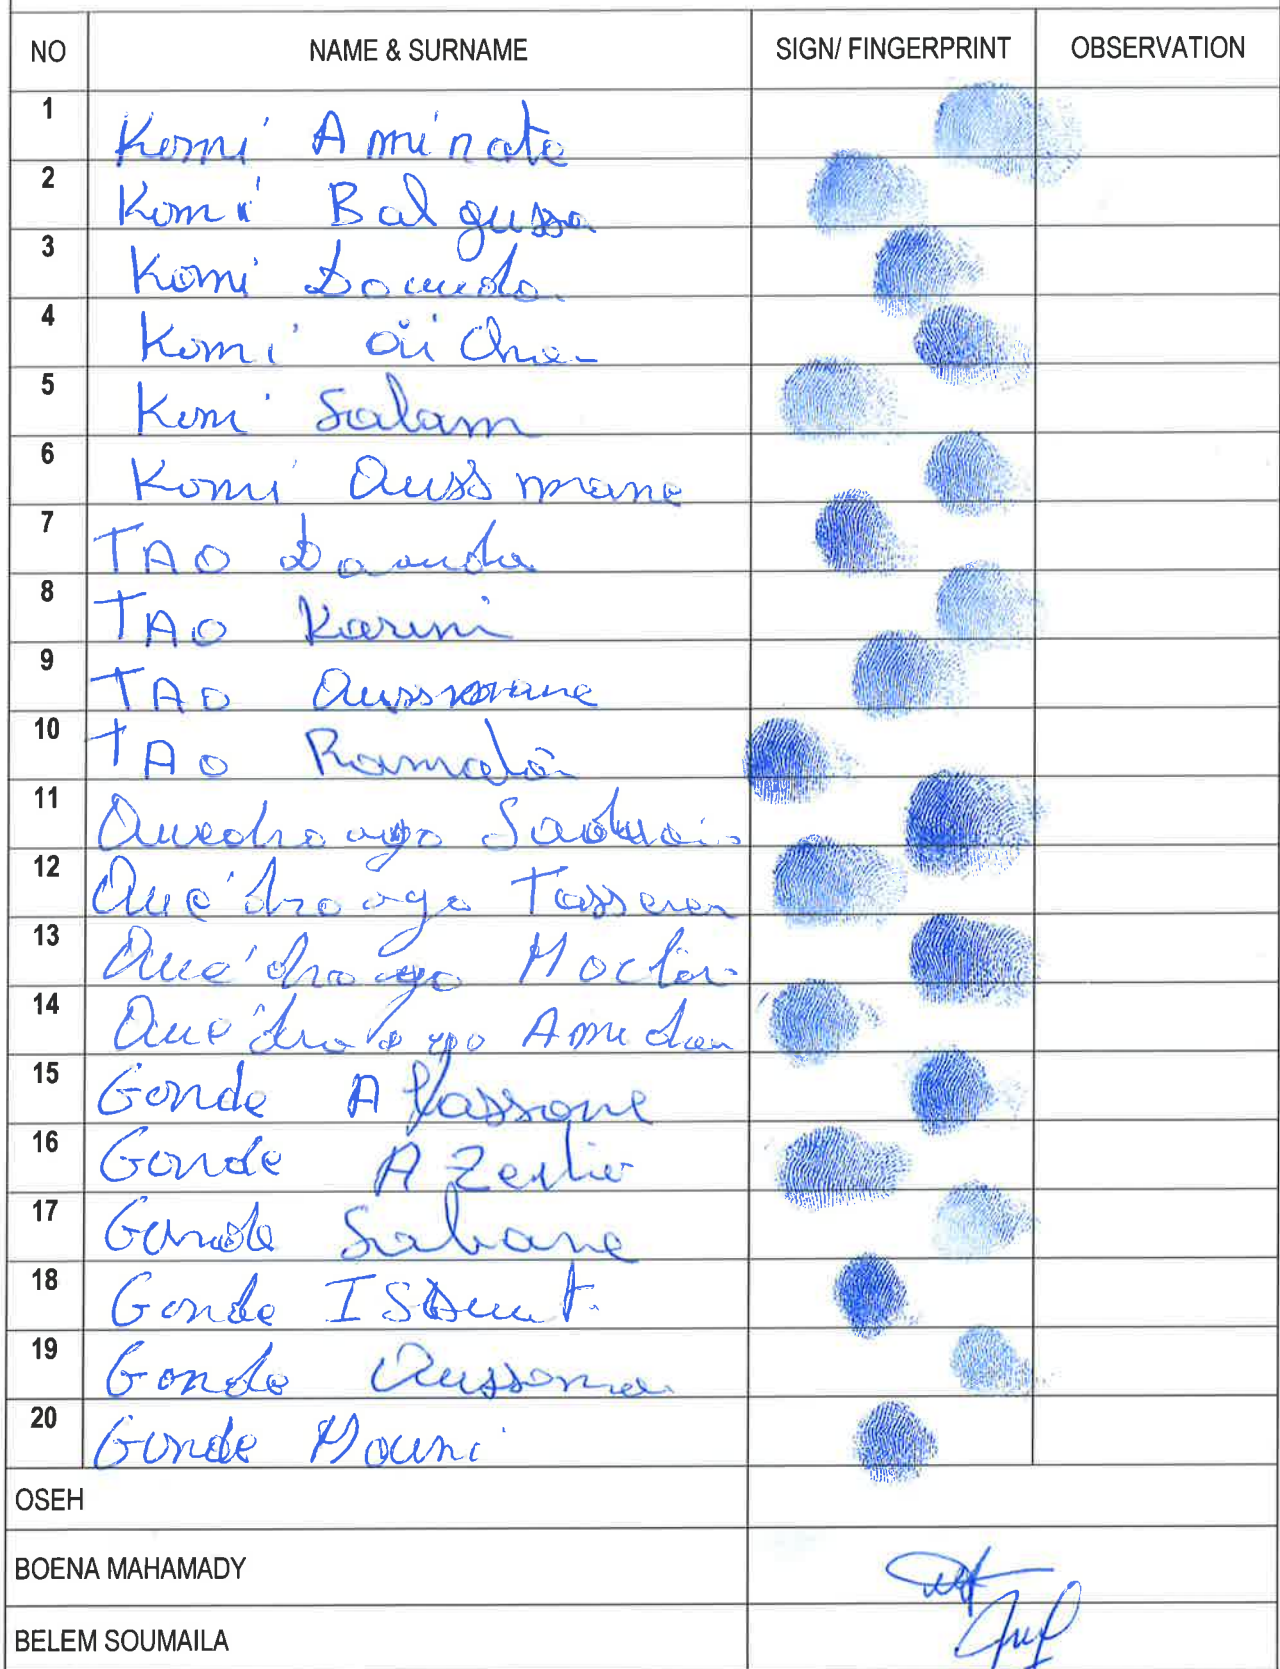 NO NAME & SURNAME SIGN/ FINGERPRINT OBSERVATION
1 Komi Aminata
2 Komi Balgussa
3 Komi Daouda
4 Komi
5 Komi Salam
6 Komi Oussmane
7 TAO Daouda
8 TAO Karim
9 TAO Oussmane
10 TAO
11 Ouedraogo
12 Oué'draogo Tasseren
13 Oué'draogo Moctar
14 Oué'draogo Amidou
15 Gonde Alassane
16 Gonde
17 Gonde
18 Gonde
19 Gonde
20 Gonde Mouni
OSEH
BOENA MAHAMADY
BELEM SOUMAILA